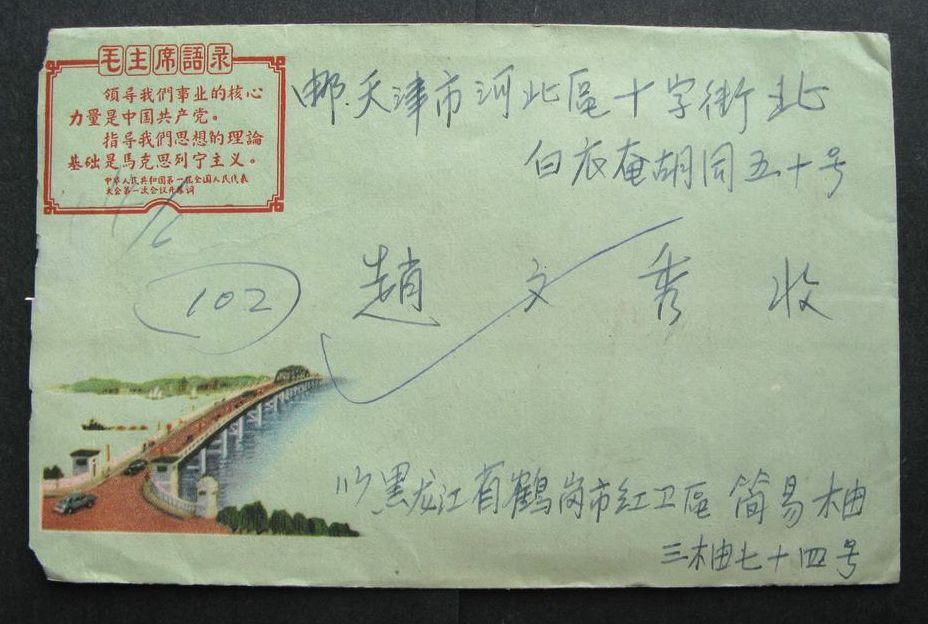 毛主席語录
領导我們事业的核心
力量是中国共产党。
指导我們思想的理論
基础是馬克思列宁主义。
中华人民共和国第一届全国人民代表
大会第一次会议开幕词
邮.天津市河北區十字街北
白衣庵胡同五十号
102
趙文秀收
黑龙江省鶴岗市红卫區简易
三柚七十四号